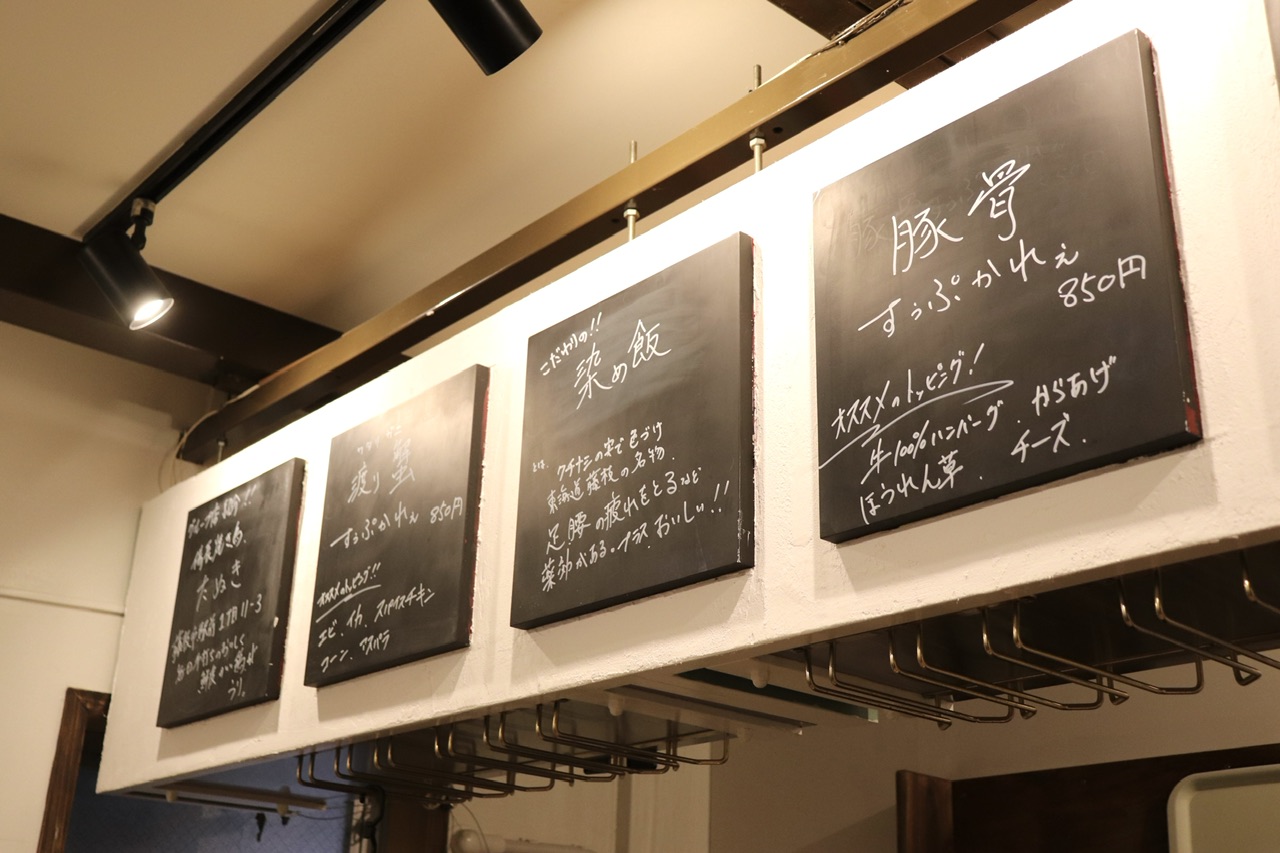 ディープな
備長焼き鳥
たぬき
藤枝市駅前2丁目11-3
ワタリガニ
渡り蟹
すぅぷかれぇ 850円
オススメのトッピング!!
エビ、イカ、スパイスチキン
コーン、アスパラ
こだわりの!!
染め飯
とは、クチナシの実で色づけ
東海道藤枝の名物.
足腰の疲れをとるなど
薬効がある。プラス、おいしい!!
豚骨
すぅぷかれぇ
850円
オススメのトッピング!
牛100%ハンバーグ、からあげ
ほうれん草、チーズ.